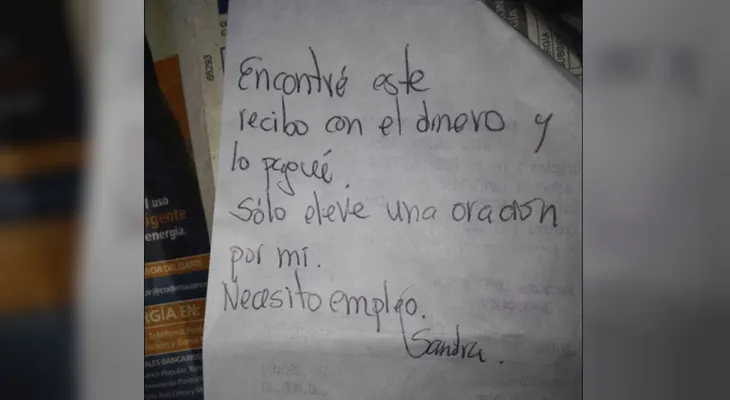 Encontré este
recibo con el dinero y
lo pagué.
Sólo eleve una oración
por mí.
Necesito empleo.
Sandra.
65293
l uso
igente
energía.
SOR DEL CLIENTE
GÍA EN: